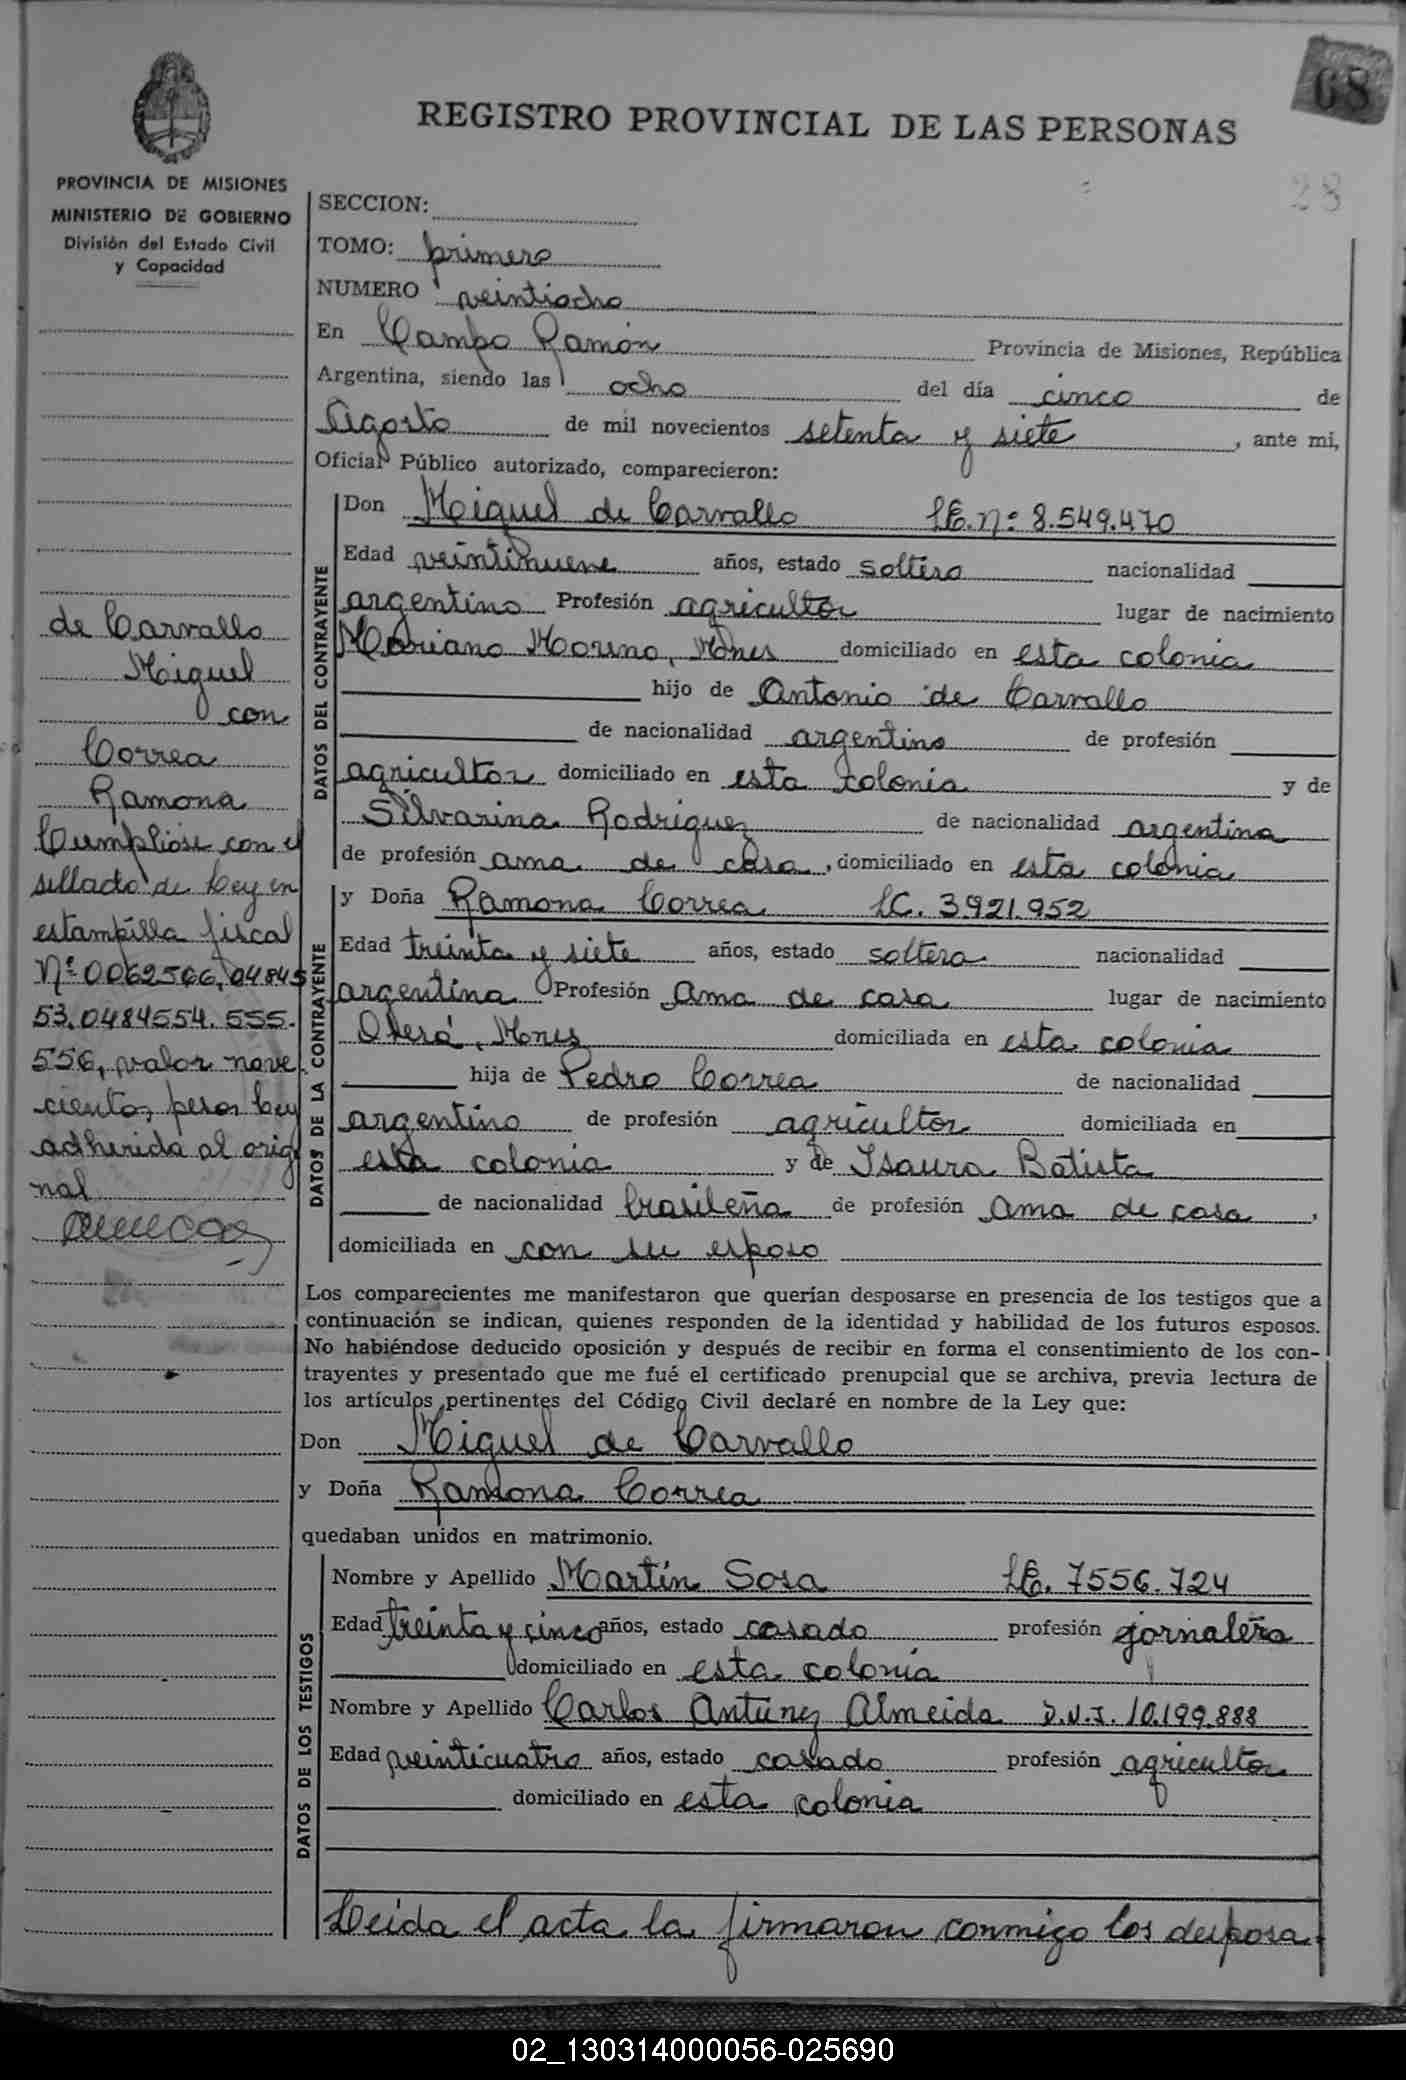 68
REGISTRO PROVINCIAL DE LAS PERSONAS
28
PROVINCIA DE MISIONES
MINISTERIO DE GOBIERNO
División del Estado Civil
y Capacidad
SECCION:
TOMO: primero
NUMERO veintiocho
En Campo Ramón Provincia de Misiones, República
Argentina, siendo las ocho del día cinco de
Agosto de mil novecientos setenta y siete, ante mi,
Oficial Público autorizado, comparecieron:
DATOS DEL CONTRAYENTE
Don Miguel de Carvallo LE. nº 8.549.470
Edad veintinueve años, estado soltero nacionalidad
argentino Profesión agricultor lugar de nacimiento
Mariano Moreno, Mnes domiciliado en esta colonia
hijo de Antonio de Carvallo
de nacionalidad argentino de profesión
agricultor domiciliado en esta colonia y de
Silvarina Rodriguez de nacionalidad argentina
de profesión ama de casa, domiciliado en esta colonia
DATOS DE LA CONTRAYENTE
y Doña Ramona Correa LC. 3.921.952
Edad treinta y siete años, estado soltera nacionalidad
argentina Profesión Ama de casa lugar de nacimiento
Oberá, Mnes domiciliada en esta colonia
hija de Pedro Correa de nacionalidad
argentino de profesión agricultor domiciliada en
esta colonia y de Isaura Batista
de nacionalidad brasileña de profesión Ama de casa,
domiciliada en con su esposo
de Carvallo
Miguel
con
Correa
Ramona
Cumplióse con el
sellado de Ley en
estampilla fiscal
Nº 0062566, 04845
53.0484554.555.
556, valor nove
cientos pesos Ley
adherida al origi
nal
Los comparecientes me manifestaron que querían desposarse en presencia de los testigos que a
continuación se indican, quienes responden de la identidad y habilidad de los futuros esposos.
No habiéndose deducido oposición y después de recibir en forma el consentimiento de los con-
trayentes y presentado que me fué el certificado prenupcial que se archiva, previa lectura de
los artículos pertinentes del Código Civil declaré en nombre de la Ley que:
Don Miguel de Carvallo
y Doña Ramona Correa
quedaban unidos en matrimonio.
DATOS DE LOS TESTIGOS
Nombre y Apellido Martín Sosa LE. 7556.724
Edad treinta y cinco años, estado casado profesión jornalero
domiciliado en esta colonia
Nombre y Apellido Carlos Antunez Almeida D.N.I. 10.199.888
Edad veinticuatro años, estado casado profesión agricultor
domiciliado en esta colonia
Leida el acta la firmaron conmigo los desposa
02_130314000056-025690